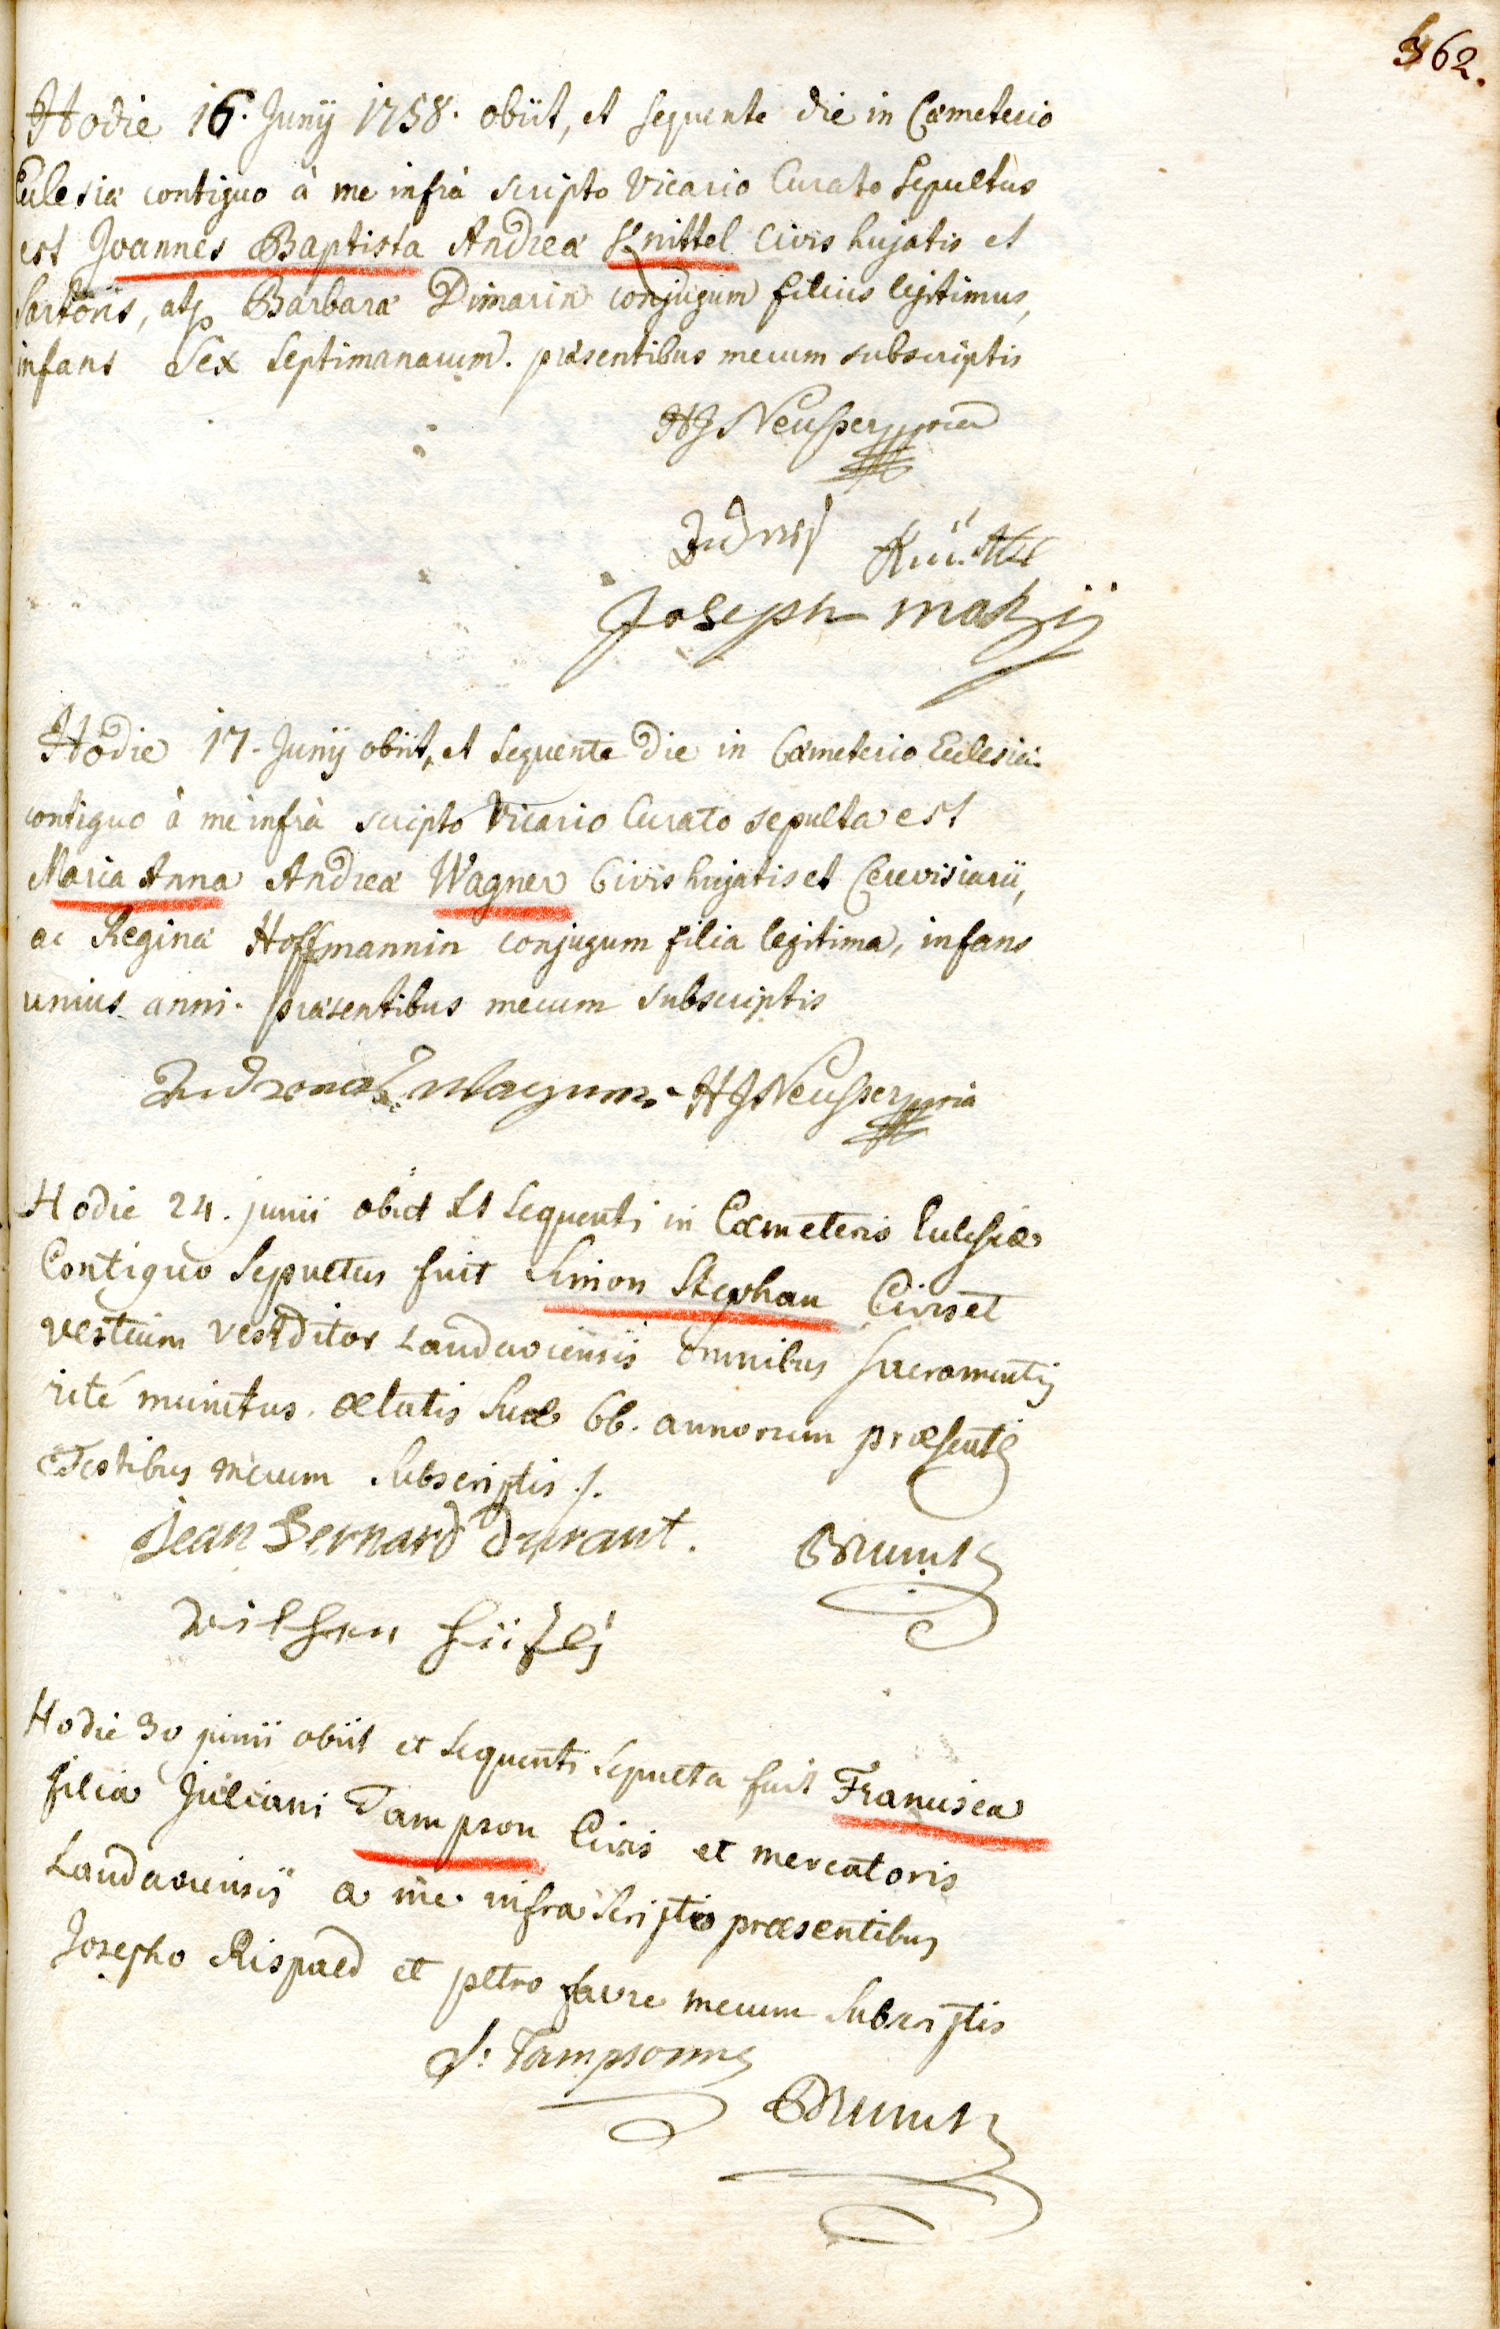 362.
Hodie 16. Junij 1758. obiit, et sequente die in Cœmeterio
Ecclesiæ contiguo à me infrà scripto Vicario Curato sepultus
est Joannes Baptista Andreæ Knittel Civis hujatis et
Sartoris, atq Barbaræ Dimarin conjugum filius legitimus,
infans sex septimanarum. præsentibus mecum subscriptis
HJ Neusser mpria
Joseph Matzij
Hodie 17. Junij obiit, et sequente die in Cœmeterio Ecclesiæ
contiguo à me infrà scripto Vicario Curato sepulta est
Maria Anna Andreæ Wagner Civis hujatis et Cerevisiarii,
ac Reginæ Hoffmannin conjugum filia legitima, infans
unius anni. præsentibus mecum subscriptis
HJ Neusser mpria
Hodie 24. junii obiit Et sequenti in Cœmeterio Ecclesiæ
Contiguo sepultus fuit Simon Stephan Civis et
vestium venditor Landaviensis omnibus sacramentis
rité munitus. ætatis suæ 66. annorum præsentib
Testibus mecum subscriptis ./.
Jean Bernard Durant.
Brunck
Hodie 30 junii obiit et sequenti sepulta fuit Francisca
filia Juliani Tampson Civis et mercatoris
Landaviensis a me infra scripto præsentibus
Josepho Rispaud et petro favre mecum subscriptis
J: Tampsonne
Brunck